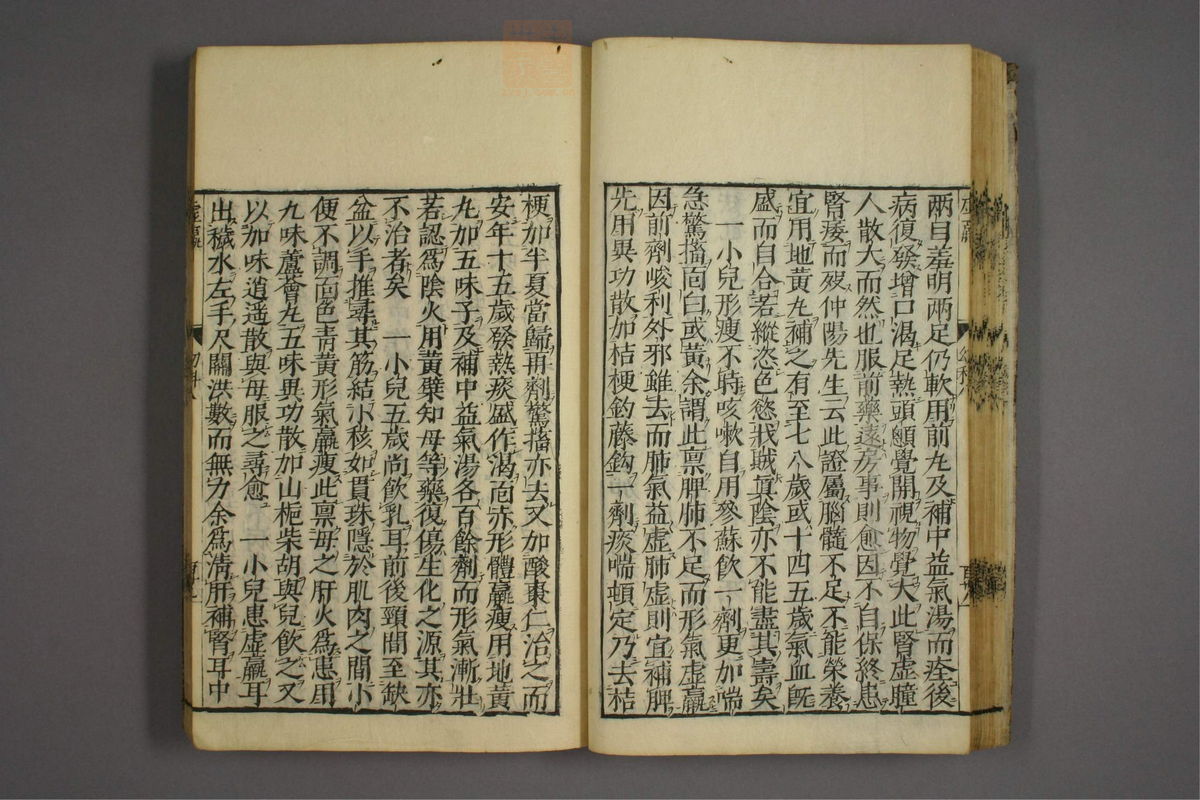 兩目羞明兩足仍軟用前丸及補中益氣湯而痊後
病復發增口渴足熱頭顱覺開視物覺大此腎虛瞳
人散大而然也服前藥遠房事則愈因不自保終患
腎痿而歿仲陽先生云此證屬腦髓不足不能榮養
宜用地黃丸補之有至七八歲或十四五歲氣血旣
盛而自合若縱恣色慾戕賊眞陰亦不能盡其壽矣
一小兒形瘦不時咳嗽自用參蘇飲一劑更加喘
急驚搐面白或黃余謂此禀脾肺不足而形氣虛羸
因前劑峻利外邪雖去而肺氣益虛肺虛則宜補脾
先用異功散加桔梗釣藤鈎一劑痰喘頓定乃去桔
梗加半夏當歸再劑驚搐亦去又加酸棗仁治之而
安年十五歲發熱痰盛作渴面赤形體羸瘦用地黃
丸加五味子及補中益氣湯各百餘劑而形氣漸壯
若認爲陰火用黃蘗知母等藥復傷生化之源其亦
不治者矣 一小兒五歲尚飲乳耳前後頸間至缺
盆以手推尋其筋結小核如貫珠隱於肌肉之間小
便不調面色青黃形氣羸瘦此禀母之肝火爲患用
九味蘆薈丸五味異功散加山梔柴胡與兒飲之又
以加味逍遥散與母服之尋愈 一小兒患虛羸耳
出穢水左手尺關洪數而無力余爲清肝補腎耳中
虛羸